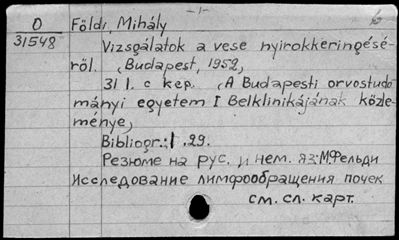 -1-
О Földi, Mihály
31548
Vizsgálatok a vese nyirokkeringésé-
ről. (Budapest, 1952,
31 l. с kep. (A Budapesti orvostudo
mányi egyetem I Belklinikájának közle-
ménye)
Bibliogr.: l. 29.
Резюме на рус. и нем. яз. М.Фельди
Исследование лимфообращения почек
см. сл. карт.